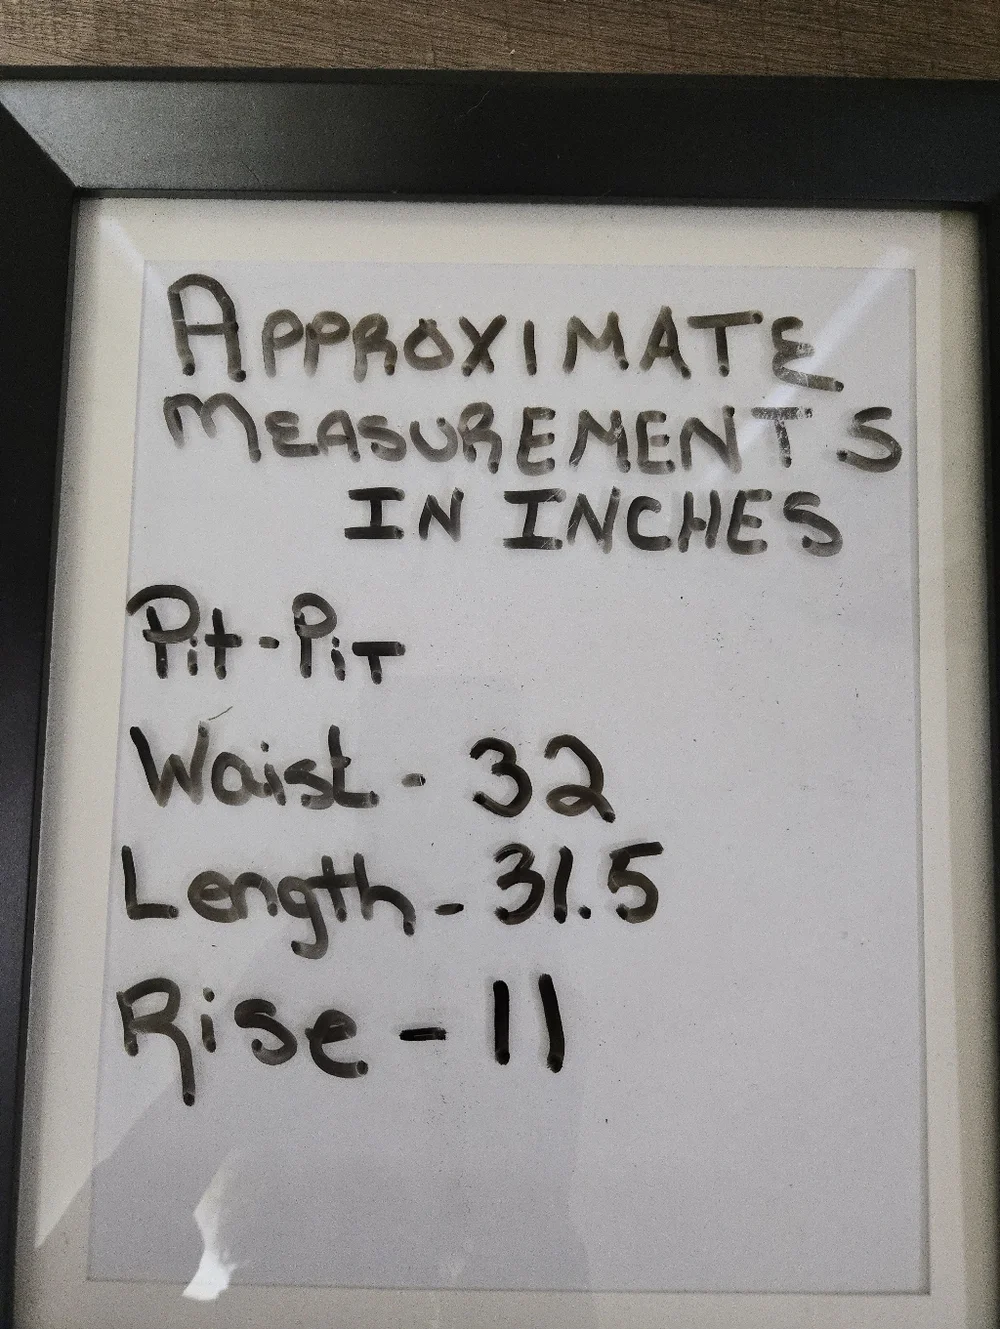 APPROXIMATE
MEASUREMENTS
IN INCHES
Pit - PiT
Waist - 32
Length - 31.5
Rise - 11